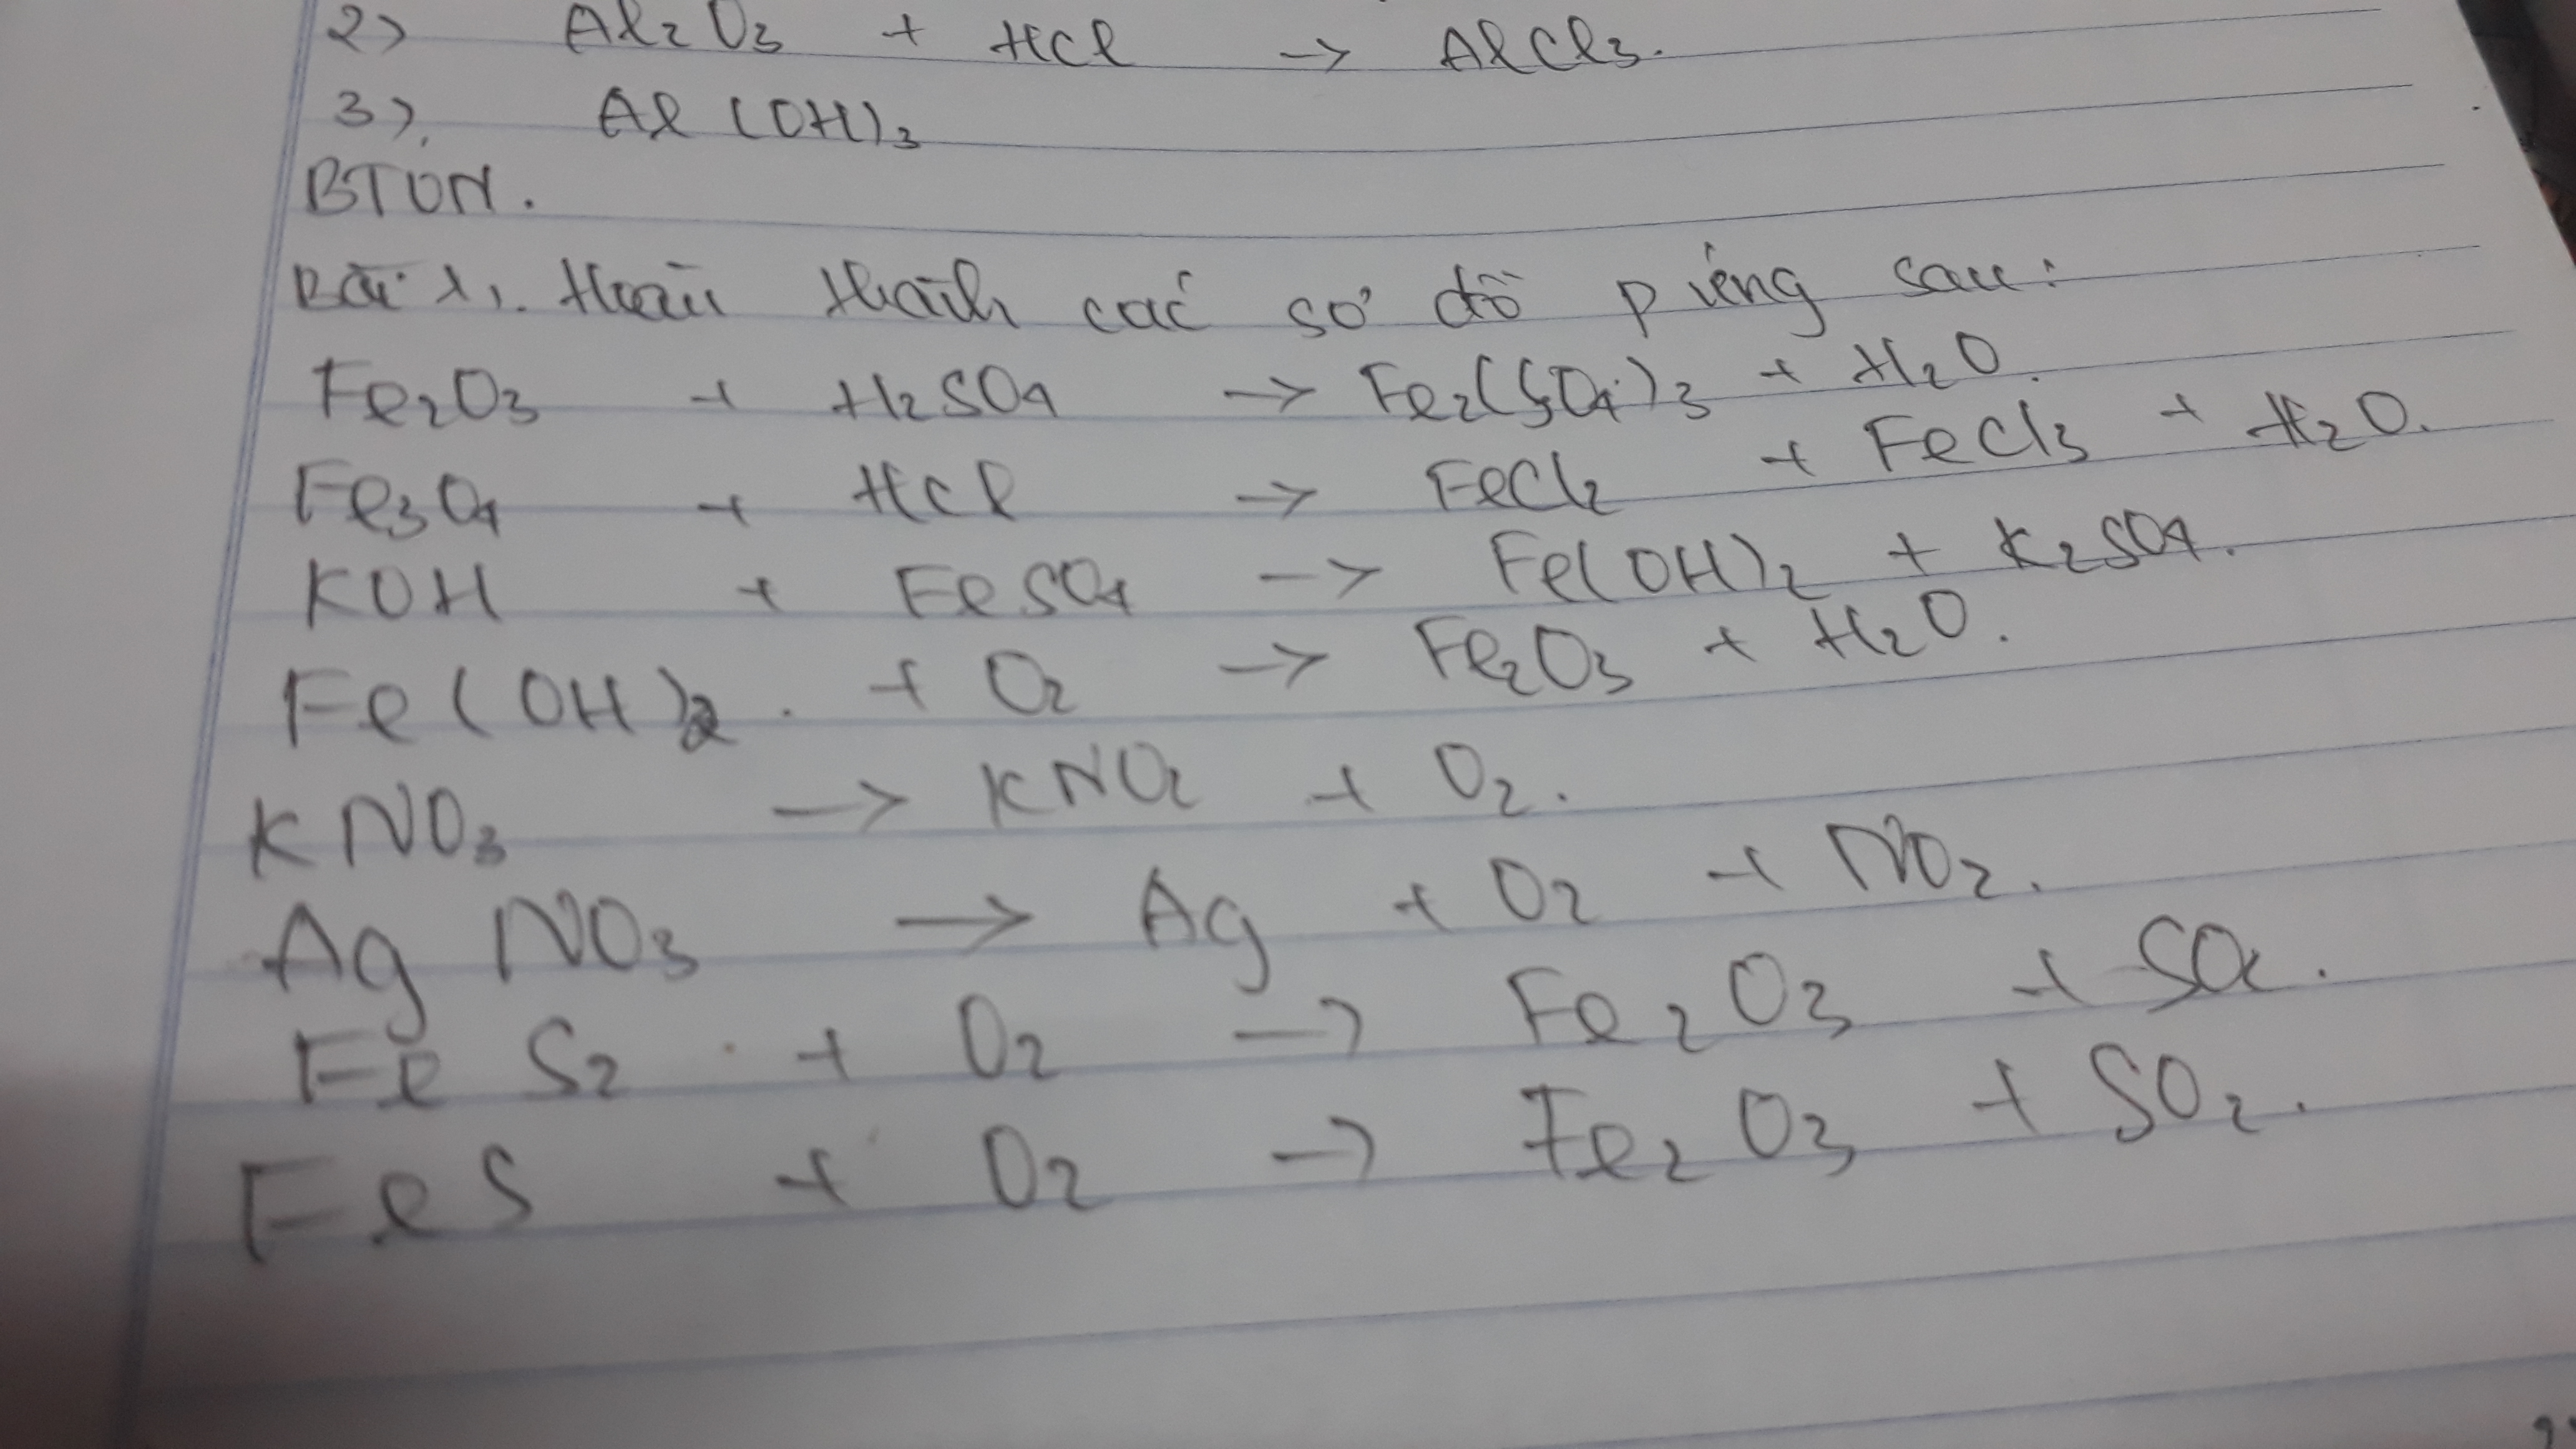 2) Al2O3 + HCl → AlCl3.
3). Al(OH)3
BTVN.
Bài 1. Hoàn thành các sơ đồ pứng sau:
Fe2O3 + H2SO4 → Fe2(SO4)3 + H2O.
Fe3O4 + HCl → FeCl2 + FeCl3 + H2O.
KOH + FeSO4 → Fe(OH)2 + K2SO4.
Fe(OH)2 + O2 → Fe2O3 + H2O.
KNO3 → KNO2 + O2.
AgNO3 → Ag + O2 + NO2.
FeS2 + O2 → Fe2O3 + SO2.
FeS + O2 → Fe2O3 + SO2.